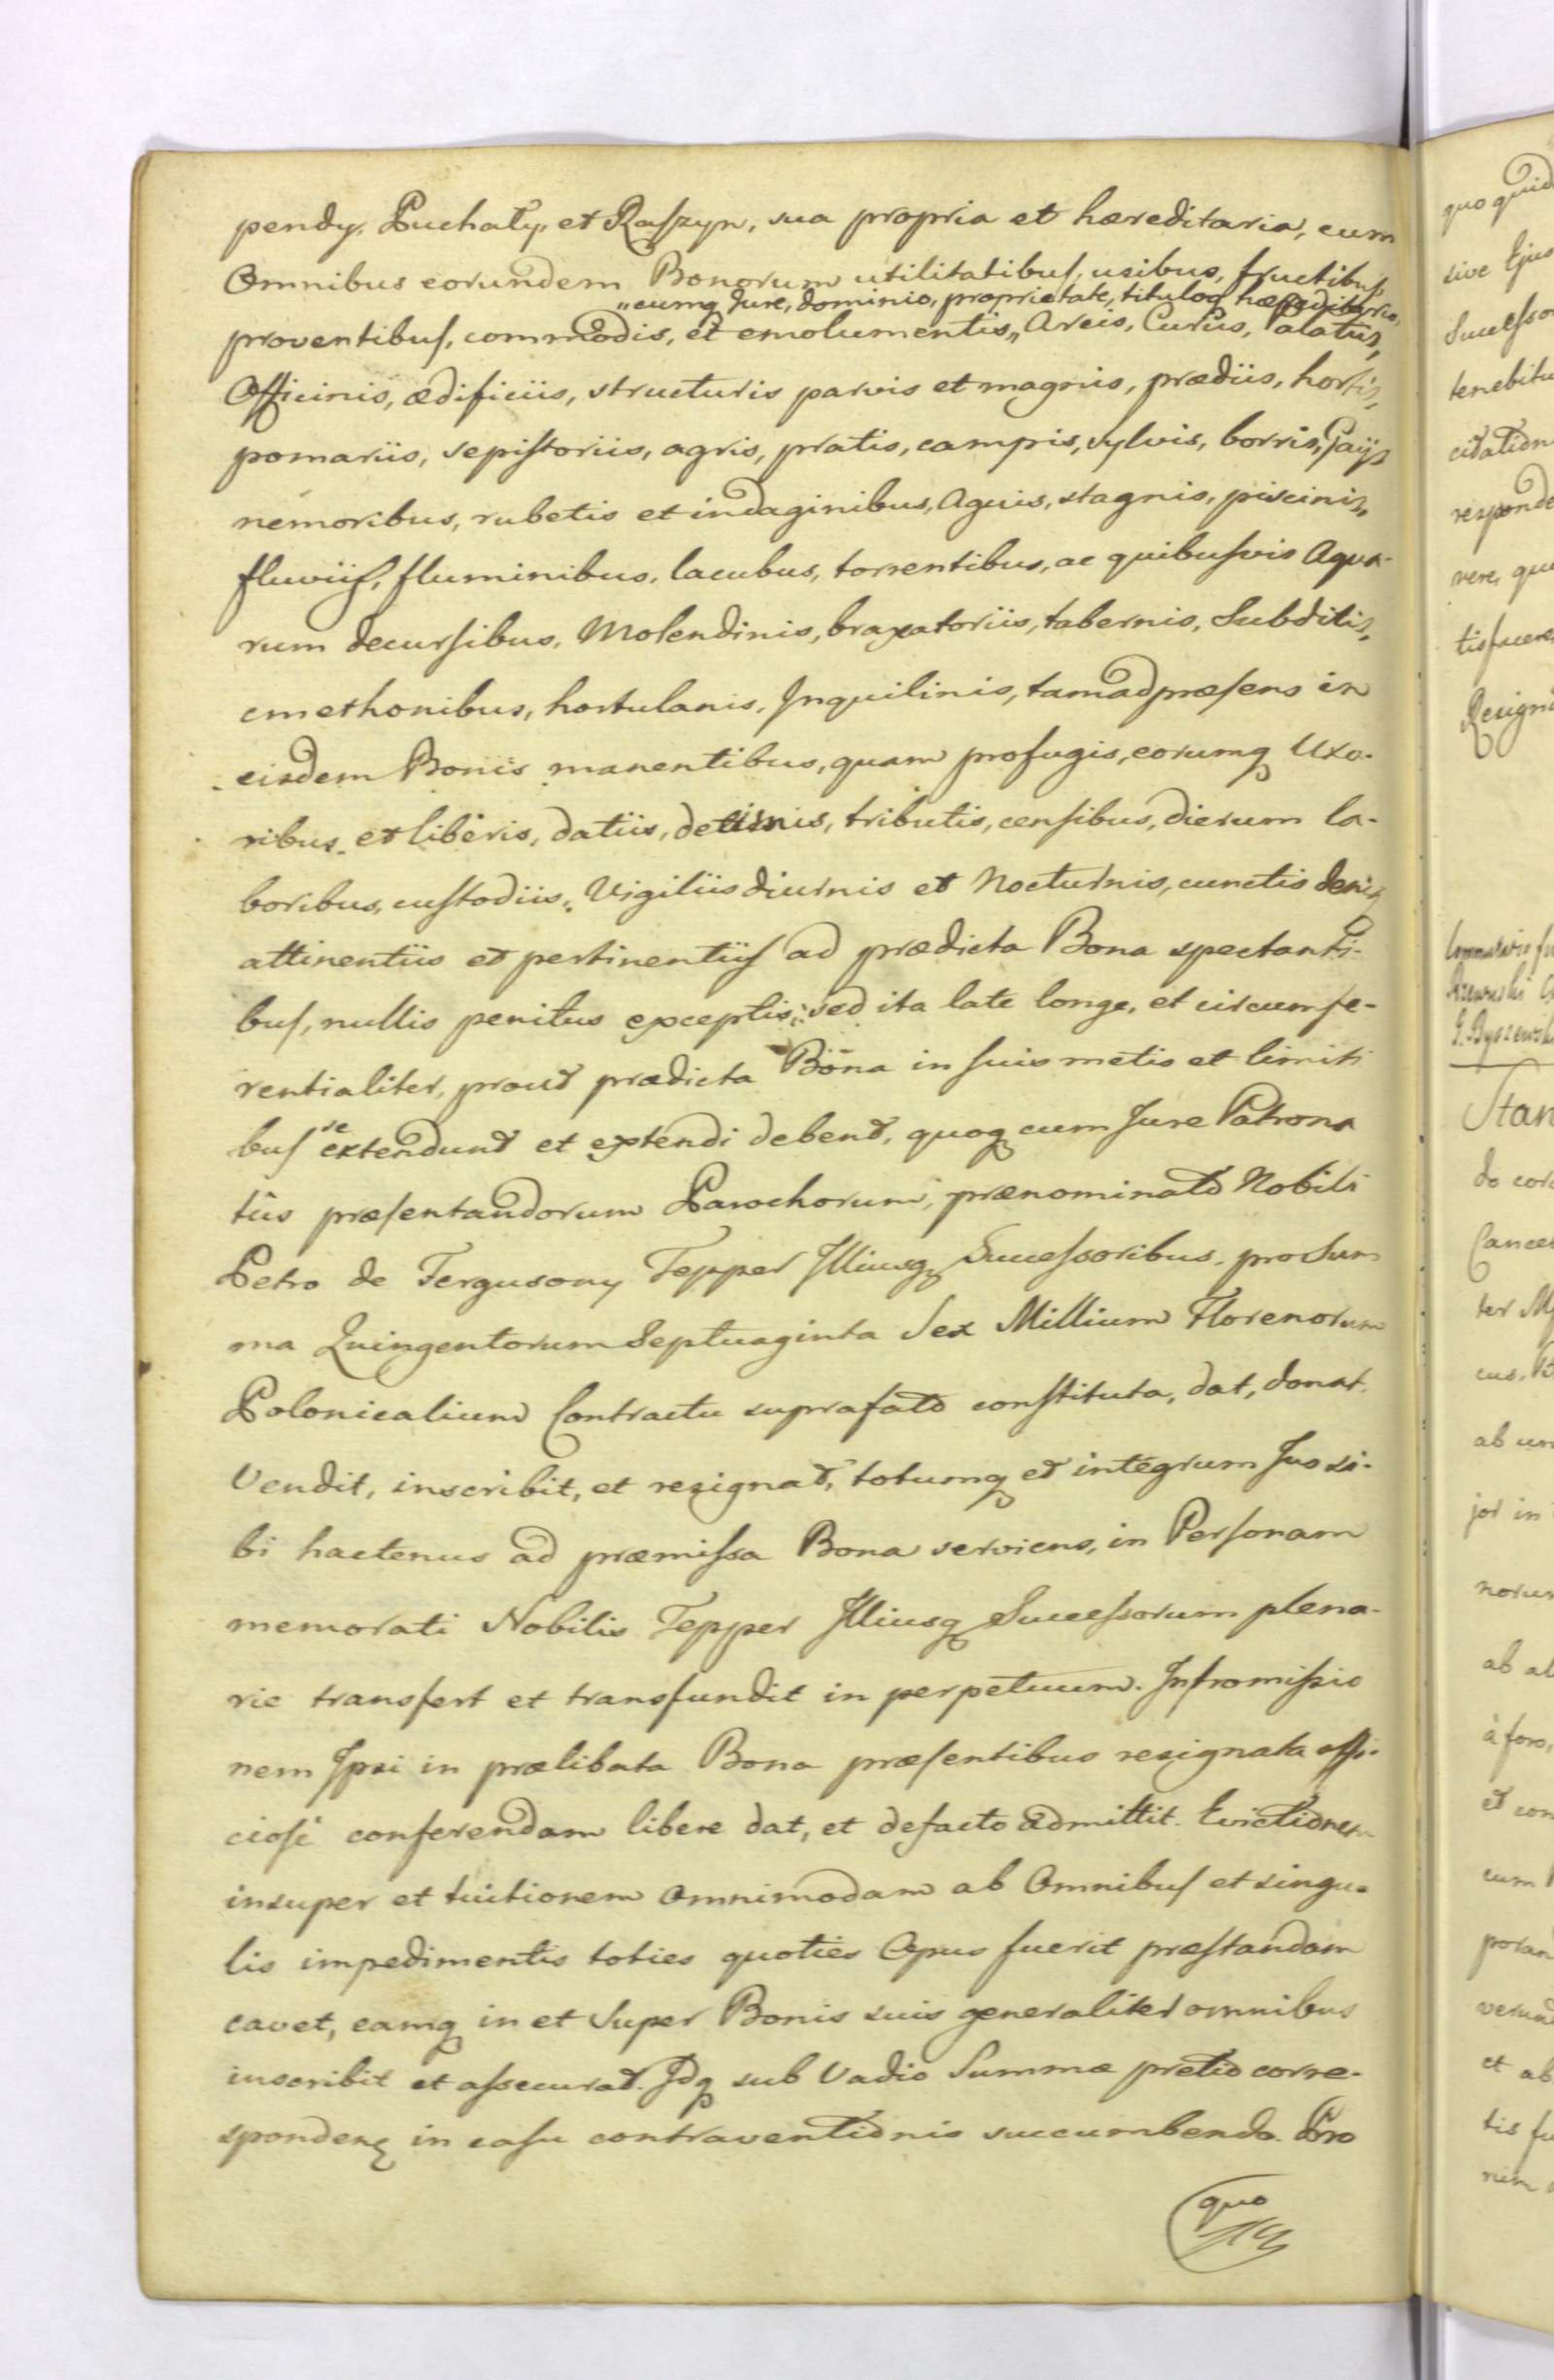 pendy, Puchały, et Raszyn, sua propria et hæreditaria, cum
Omnibus eorundem Bonorum utilitatibus, usibus, fructibus,
„cumq Jure, dominio, proprietate, tituloq hæreditario,
proventibus, commodis, et emolumentis„ Areis, Curiis, Palatiis,
Officinis, ædificiis, structuris parvis et magnis, prædiis, hortis,
pomariis, sepistoriis, agris, pratis, campis, sylvis, borris, Gaijs
nemoribus, rubetis et indaginibus, Aquis, stagnis, piscinis,
fluviis, fluminibus, lacubus, torrentibus, ac quibusvis Aqua-
rum decursibus, Molendinis, braxatoriis, tabernis, Subditis,
cmethonibus, hortulanis, Inquilinis, tam ad præsens in
eisdem Bonis manentibus, quam profugis, eorumq Uxo-
ribus et liberis, datiis, decimis, tributis, censibus, dierum la-
boribus, custodiis, Vigiliis diurnis et Nocturnis, cunctis deniq
attinentiis et pertinentiis ad prædicta Bona spectanti-
bus, nullis penitus exceptis; sed ita late longe, et circumfe-
rentialiter, prout prædicta Bona in suis metis et limiti
bus se extendunt et extendi debent, quoq cum Jure Patrona
tus præsentandorum Parochorum, prænominato Nobili
Petro de Fergusony Tepper Illiusq Successoribus, pro Sum
ma Quingentorum Septuaginta Sex Millium Florenorum
Polonicalium Contractu suprafato constituta, dat, donat,
Vendit, inscribit, et resignat, totumq et integrum Jus si-
bi hactenus ad præmissa Bona serviens, in Personam
memorati Nobilis Tepper Illiusq Successorum plena-
rie transfert et transfundit in perpetuum. Intromissio
nem Ipsi in prælibata Bona præsentibus resignata offi-
ciose conferendam libere dat, et defacto admittit. Evictionem
insuper et tuitionem omnimodam ab Omnibus et singu-
lis impedimentis toties quoties Opus fuerit præstandam
cavet, eamq in et Super Bonis suis generaliter omnibus
inscribit et assecurat. Idq sub Vadio Summæ pretio corre-
spondenq in casu contraventionis succumbendo. Pro
quo
quo quid
sive Ejus
Successo
tenebitu
citation
responde
rere, qua
tisfacere
Resign
Stan
do cor
Cancel
ter M
cus,
ab un
jor in
norum
ab al
à foro,
et con
cum
poran
verund
et ab
tis fu